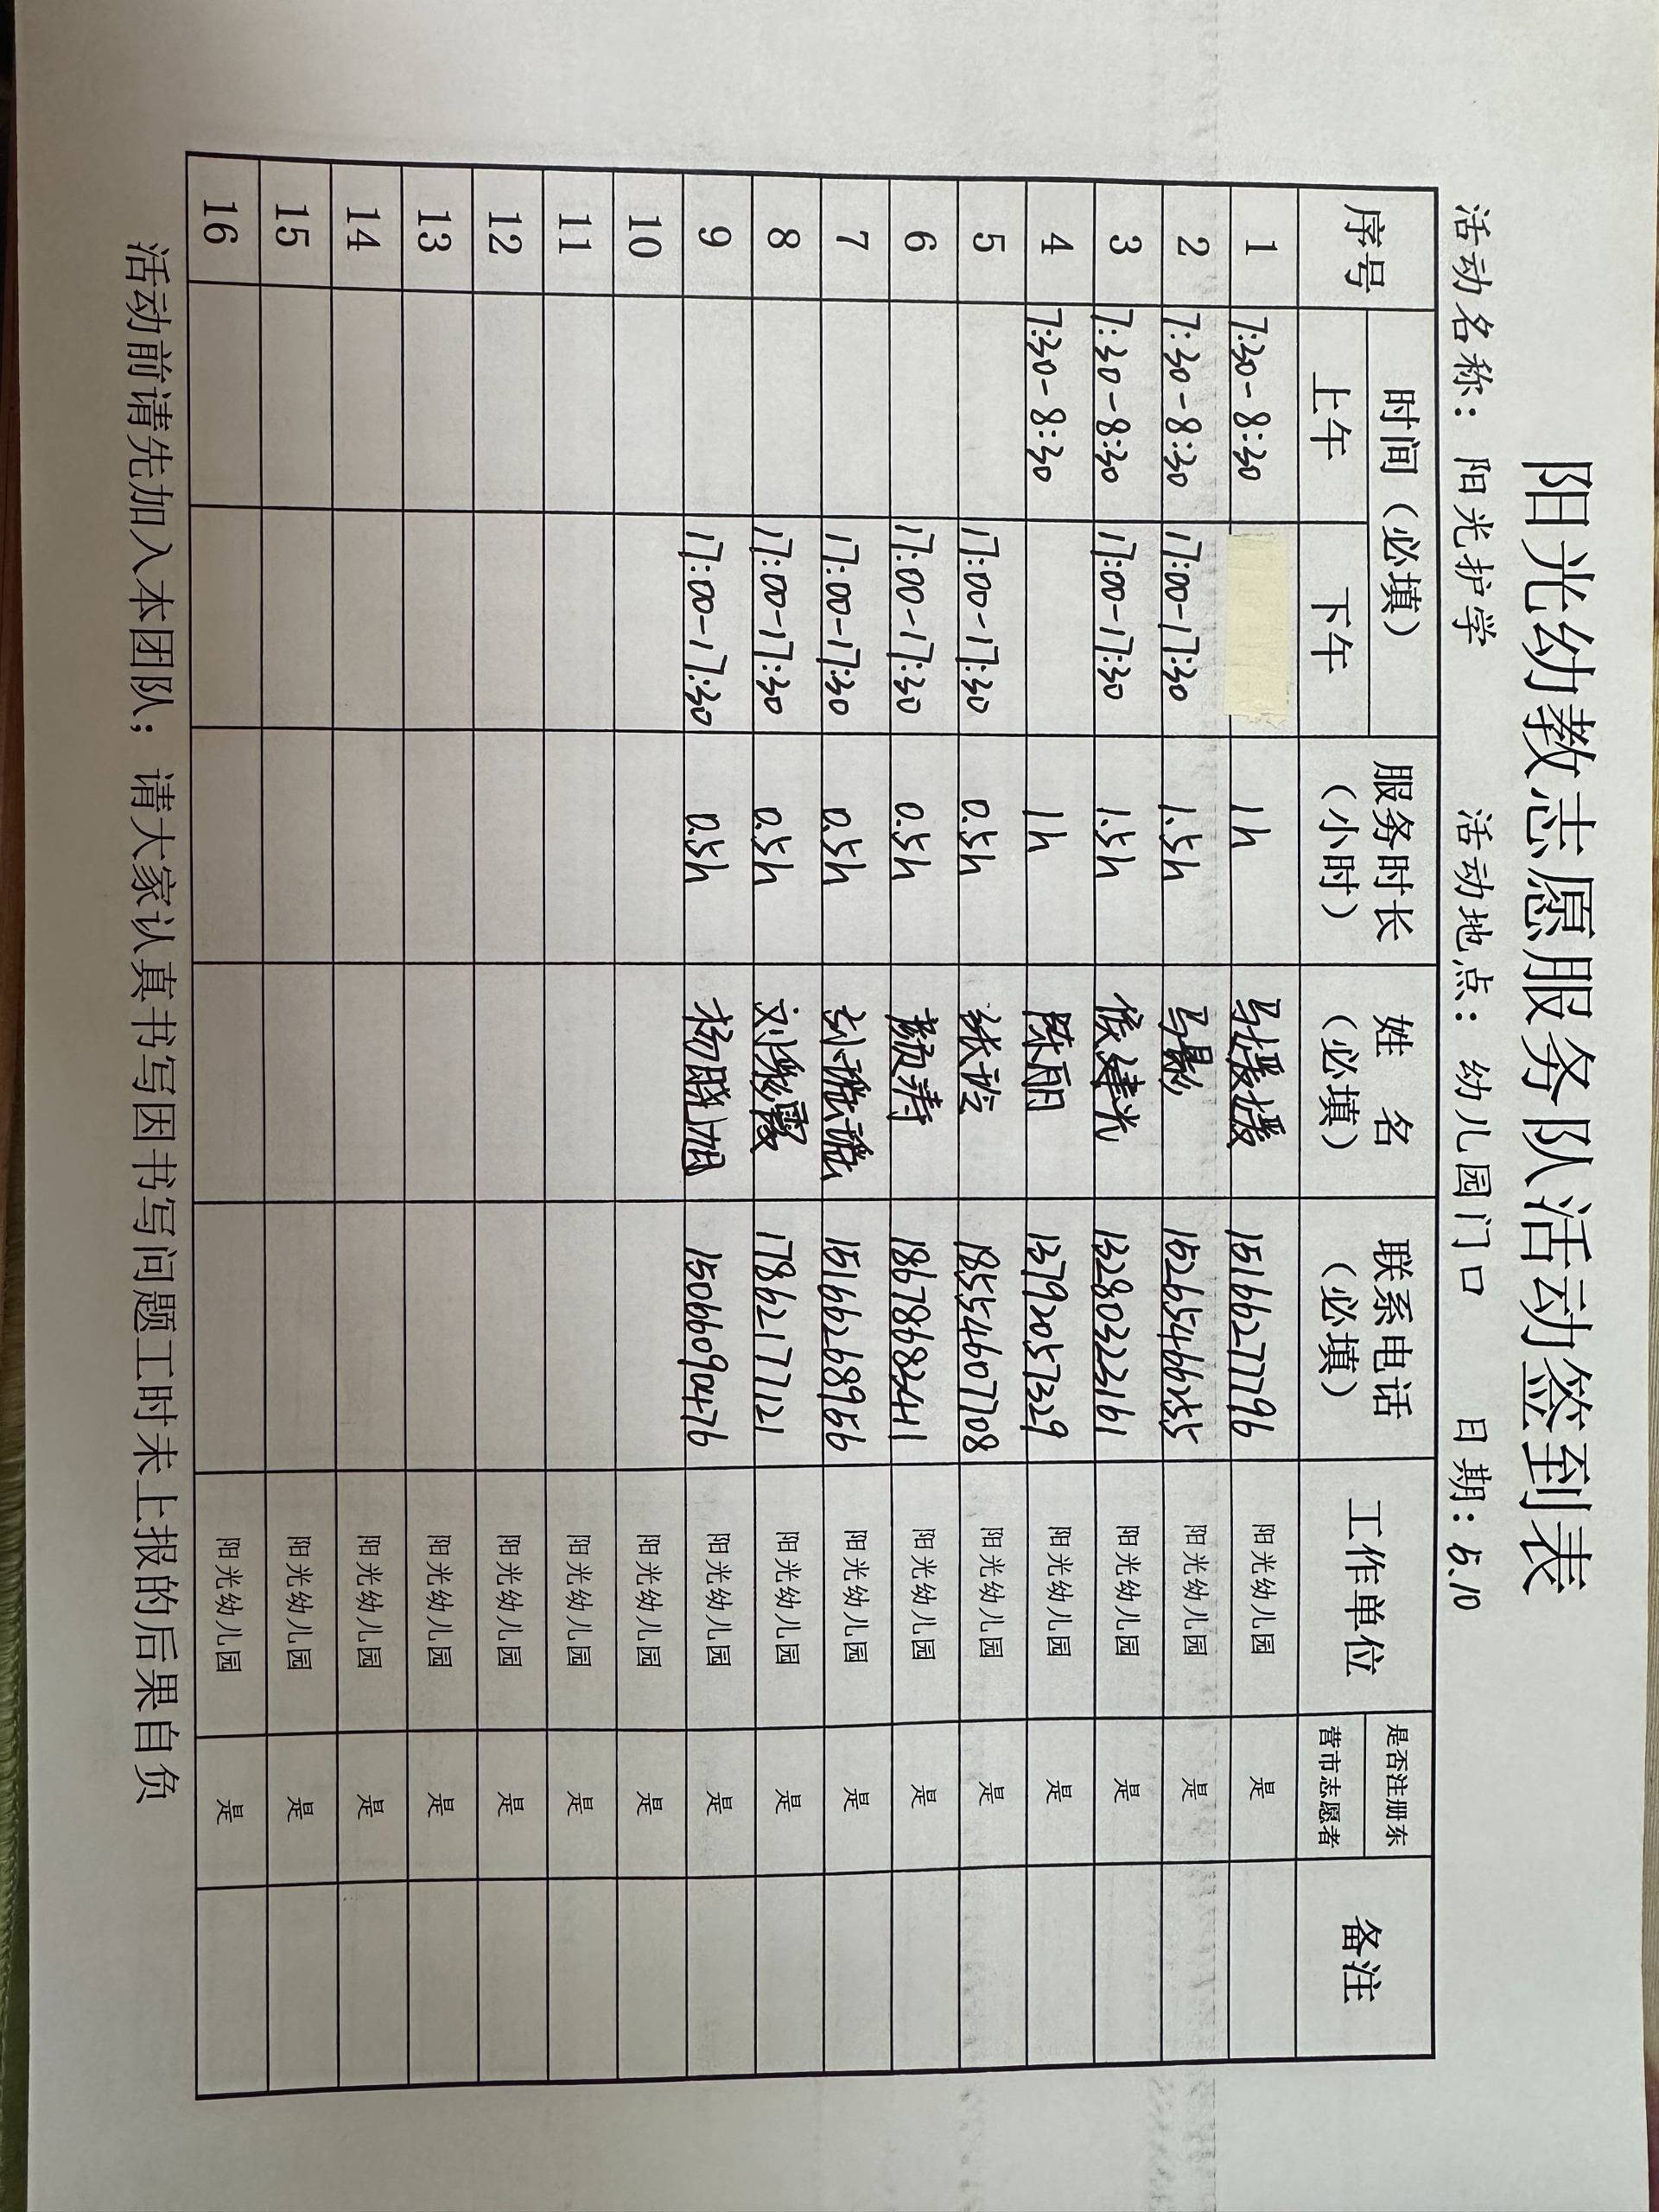 阳光幼教志愿服务队活动签到表
活动名称：阳光护学 活动地点：幼儿园门口 日期：5.10
序号 时间（必填） 服务时长（小时） 姓 名（必填） 联系电话（必填） 工作单位 是否注册东营市志愿者 备注
上午 下午
1 7:30-8:30 1h 马援援 15166277796 阳光幼儿园 是
2 7:30-8:30 17:00-17:30 1.5h 马影 15265466255 阳光幼儿园 是
3 7:30-8:30 17:00-17:30 1.5h 侯建光 13280322316 阳光幼儿园 是
4 7:30-8:30 1h 陈丽 13792057329 阳光幼儿园 是
5 17:00-17:30 0.5h 张玲 18554607708 阳光幼儿园 是
6 17:00-17:30 0.5h 颜寿 18678682411 阳光幼儿园 是
7 17:00-17:30 0.5h 15166268956 阳光幼儿园 是
8 17:00-17:30 0.5h 刘 霞 17862177121 阳光幼儿园 是
9 17:00-17:30 0.5h 杨晓旭 15066090476 阳光幼儿园 是
10 阳光幼儿园 是
11 阳光幼儿园 是
12 阳光幼儿园 是
13 阳光幼儿园 是
14 阳光幼儿园 是
15 阳光幼儿园 是
16 阳光幼儿园 是
活动前请先加入本团队；请大家认真书写因书写问题工时未上报的后果自负